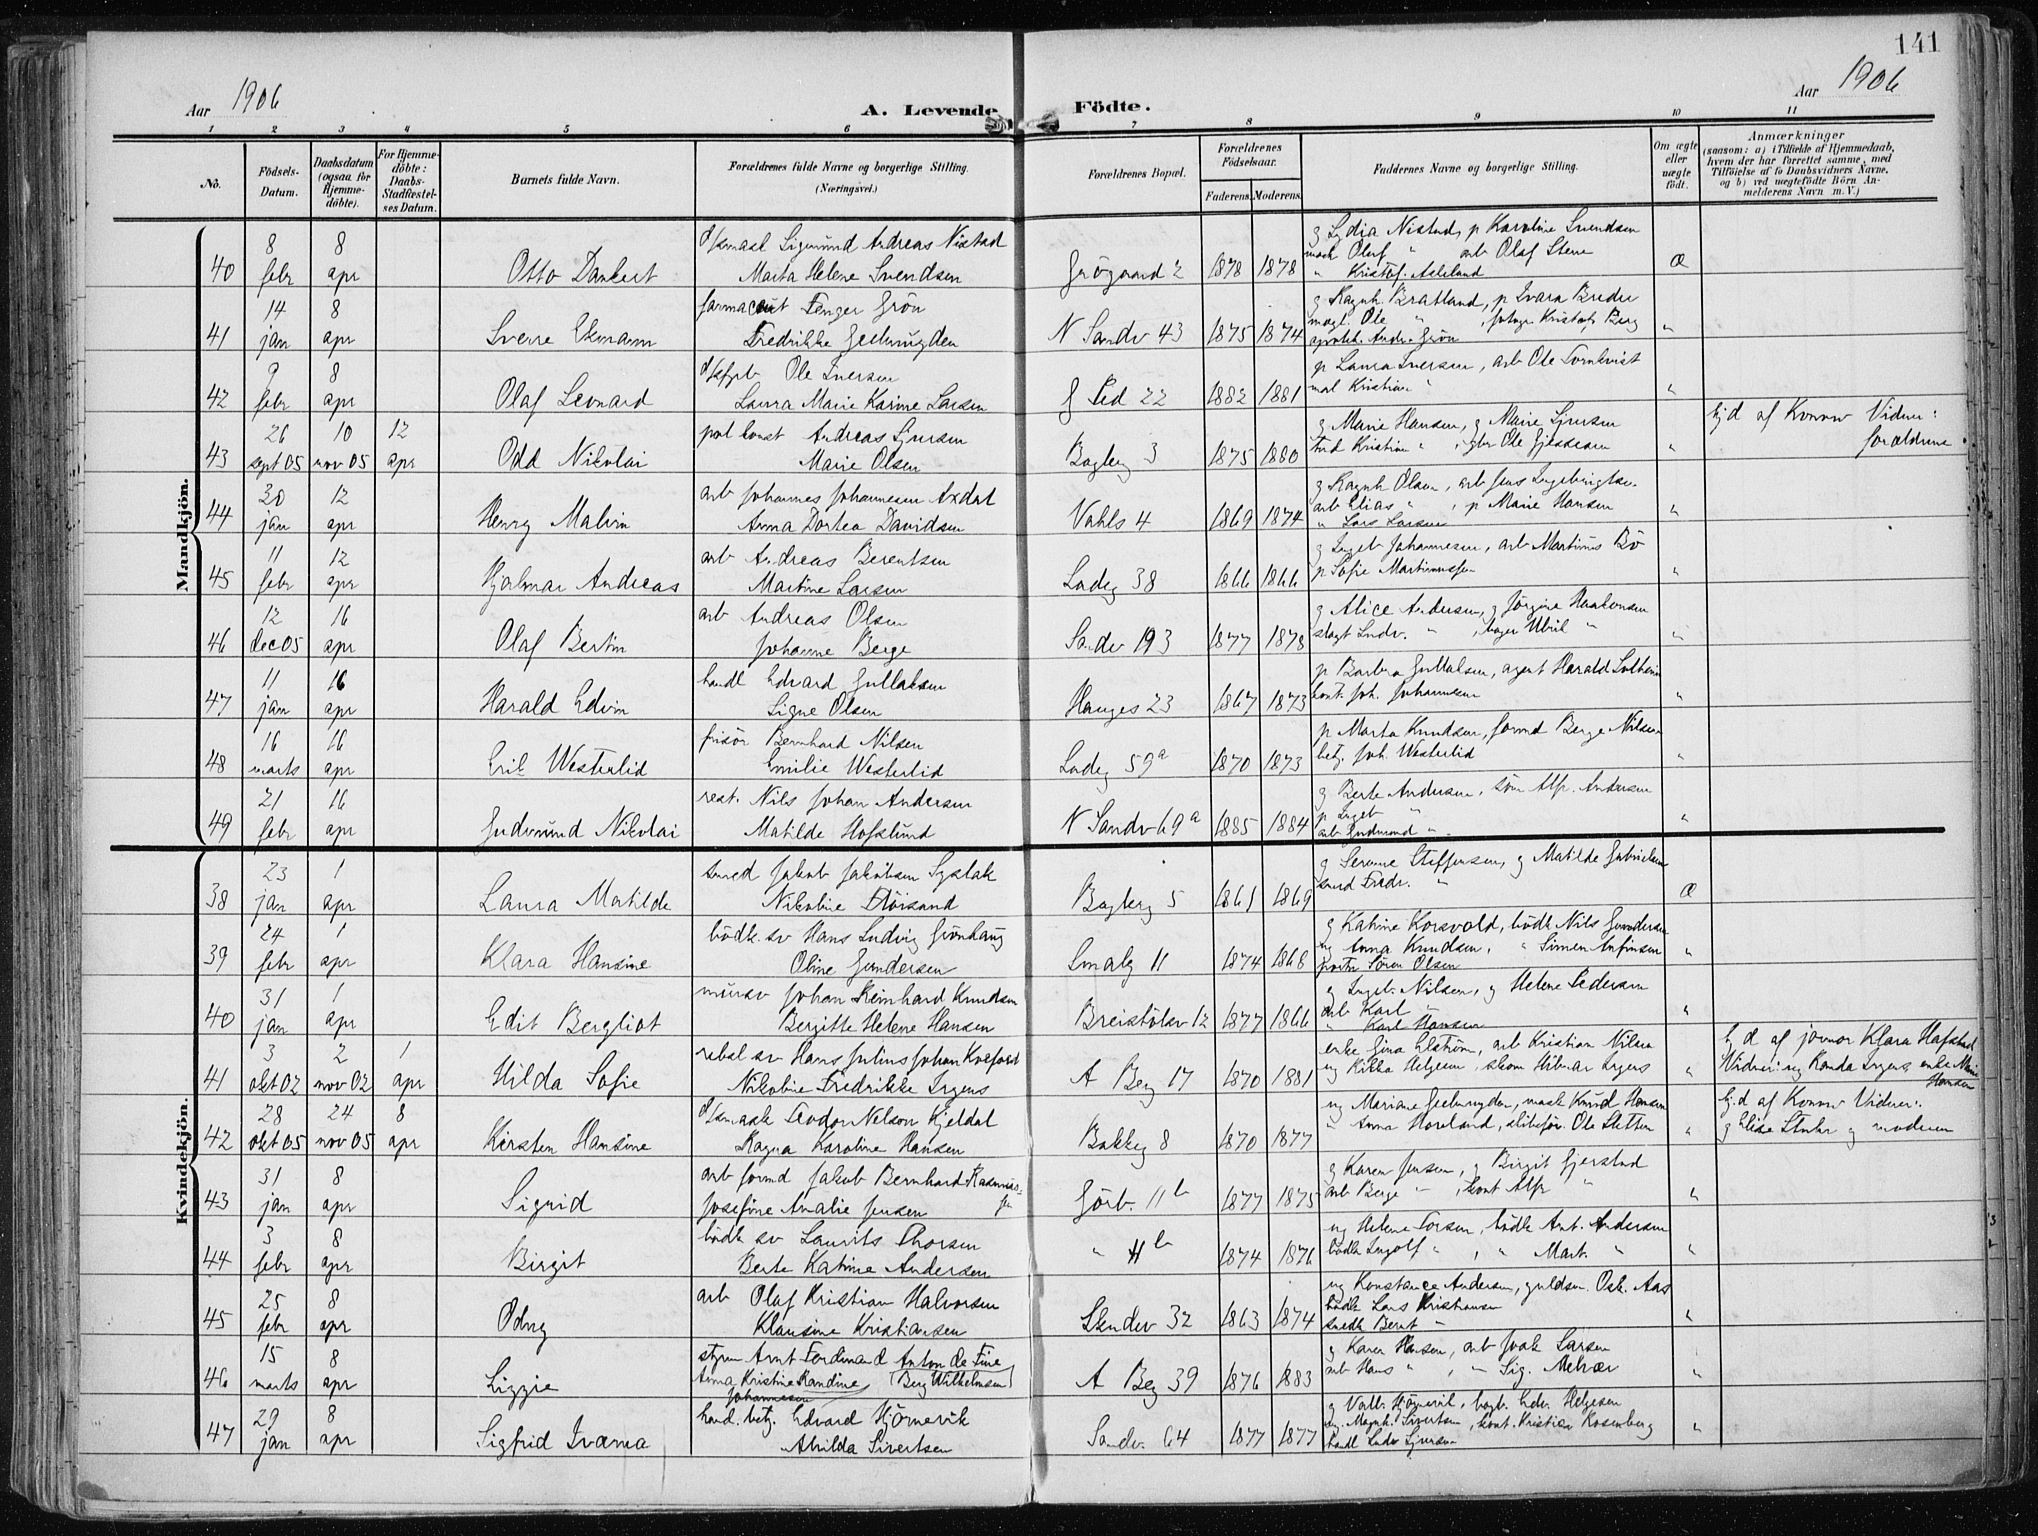 141
Aar 1906
A. Levende Födte.
Aar 1906
1 2 3 4 5 6 7 8 9 10 11
No.
Födsels-Datum.
Daabsdatum (ogsaa for Hjemme-döbte).
For Hjemme-döbte: Daabs-Stadfæstel-ses Datum.
Barnets fulde Navn.
Forældrenes fulde Navne og borgerlige Stilling. (Næringsvei.)
Forældrenes Bopæl.
Forældrenes Födselsaar.
Faderens. Moderens.
Faddernes Navne og borgerlige Stilling.
Om ægte eller uægte födt.
Anmærkninger
(saasom: a) i Tilfælde af Hjemmedaab, hvem der har forrettet samme, med Tilföielse af to Daabsvidners Navne, og b) ved uægtefödte Börn Anmelderens Navn m. V.)
Mandkjön.
8 8 Sigmund Andreas Nistad g Lydia Nistad, p Karoline Svendsen
mask Oluf " arb Olaf Stene
40 febr apr Otto Dankert Marta Helene Svendsen Grögaard 2 1878 1878 " Kristof. Æ
14 8 farmaceut Fenger Grön g Ragnh. Bratland, p Ivara
41 jan apr Sverre Fredrikke Geelmuyden N Sandv 43 1875 1874 Andr. Grön "
9 8 Ole Iversen p Laura Iversen, arb Ole Tornkvist
42 febr apr Olaf Leonard Laura Marie Karine Larsen 22 1882 1881 mal Kristian " "
26 10 12 pol konst Andreas Sjursen g Marie Hansen, g Marie Sjursen hjd af Konow Vidner:
43 sept 05 nov 05 apr Odd Nikolai Marie Olsen Bagberg 3 1875 1880 Kristian " Ole " forældrene
30 12 arb Johannes Johannesen Axdal g Ragnh Olsen, arb Jens Ingebrigtsen
arb Elias " , p Marie Hansen
44 jan apr Henry Malvin Anna Dortea Davidsen Vahls 4 1869 1874 " Lars Larsen "
11 12 arb Andreas Berentsen g Ingeb Johannesen, arb Martinus Bö
45 febr apr Hjalmar Andreas Martine Larsen Ladeg 38 1866 1866 p Sofie "
12 16 arb Andreas Olsen g Alice Andersen, g Jörgine Haakonsen
46 dec 05 apr Olaf Bertin Johanne Berge Sandv 193 1877 1878 slagt Ludv. " "
11 16 handl Edvard Gullaksen p Barbra Gullaksen, agent Harald
47 jan apr Harald Edvin Signe Olsen Hauges 23 1867 1873 kont. Joh. Johannesen "
16 16 frisör Bernhard Nilsen p Marta Knudsen, formd Berge Nilsen
48 marts apr Erik Westerlid Emilie Westerlid Ladeg 59a 1870 1873 betj. Joh. Westerlid "
21 16 rest. Nils Johan Andersen g Berte Andersen, Alfr. Andersen
p Ingeb "
49 febr apr Gudmund Nikolai Matilde Hofslund N Sandv 69a 1885 1884 arb Gudmund " "
Kvindekjön.
23 1 smed Jakob Jakobsen Systak g Serine Steffensen, g Matilde Gabrielsen
38 jan apr Laura Matilde Nikoline Flöisand Bagberg 5 1861 1869 smed Fredr. " Æ
24 1 bödk. sv Hans Ludvig Grönhaug g Katrine Korsvold, bödk Nils Gundersen
ug Anna Knudsen, " Simon
39 febr apr Klara Hansine Oline Gundersen Smalg 11 1874 1868 Sören Olsen "
31 1 mursv Johan Reinhard Knudsen g Ingeb. Nilsen, g Helene Pedersen
arb Karl "
40 jan apr Edit Bergliot Birgitte Helene Hansen Breistölsv 12 1877 1866 " Karl Hansen "
3 2 1 rebsl sv Hans Julius Johan enke Gina Elström, arb Kristian Nilsen hjd af jormor Klara Hafstad
41 okt 02 nov 02 apr Hilda Sofie Nikoline Fredrikke Irgens A Beg 17 1870 1881 ug Rikka Helgesen, skom Hilmar Irgens " Vidner: ug Randa Irgens enke Marie Hansen
28 24 8 Teodor Nelson Kjeldal ug Mariane Geelmuyden, mask Knud Hansen hjd af Konow Vidner:
42 okt 05 nov 05 apr Kirsten Hansine Ragna Karoline Hansen Bakkeg 8 1870 1877 " Anna Ole " g Elise g moderen
31 8 arb formd Jakob Bernhard Rasmussen g Karen Jensen, g Birgit Gjerstad
43 jan apr Sigrid Josefine Amalie Jensen Görb. 11b 1877 1875 arb Berge " , kont Alfr " "
3 8 bödk sv Laurits Thorsen ug Helene Torsen, bödk Ant. Andersen
44 febr apr Birgit Berte Katrine Andersen " 11b 1874 1876 bödk Ingolf " , " Mart. " "
25 8 arb Olaf Kristian Halvorsen ug Konstance Andersen, guldsm. Osk. Aas
bödk Lars Kristiansen
45 febr apr Odny Klausine Kristiansen Skudev 32 1863 1874 snedk Bernt " "
15 8 styrm Arnt Ferdinand Anton de Fine g Karen Hansen, arb Isak Larsen
46 marts apr Lizzie Anna Kristine Randine Johannesen (Berg Wilhelmsen) A Beg 39 1876 1883 arb Hans " , " Sig. "
29 8 hand. betj. Edvard Hjörnevik g Valb Hjörnevik, bogh. Edv. Helgesen
ug Magnh. Sivertsen, kont. Kristian Rosenberg
47 jan apr Sigfrid Ivarna Alvilda Sivertsen Sandv. 64 1877 1877 handl Ludv Sjursen "